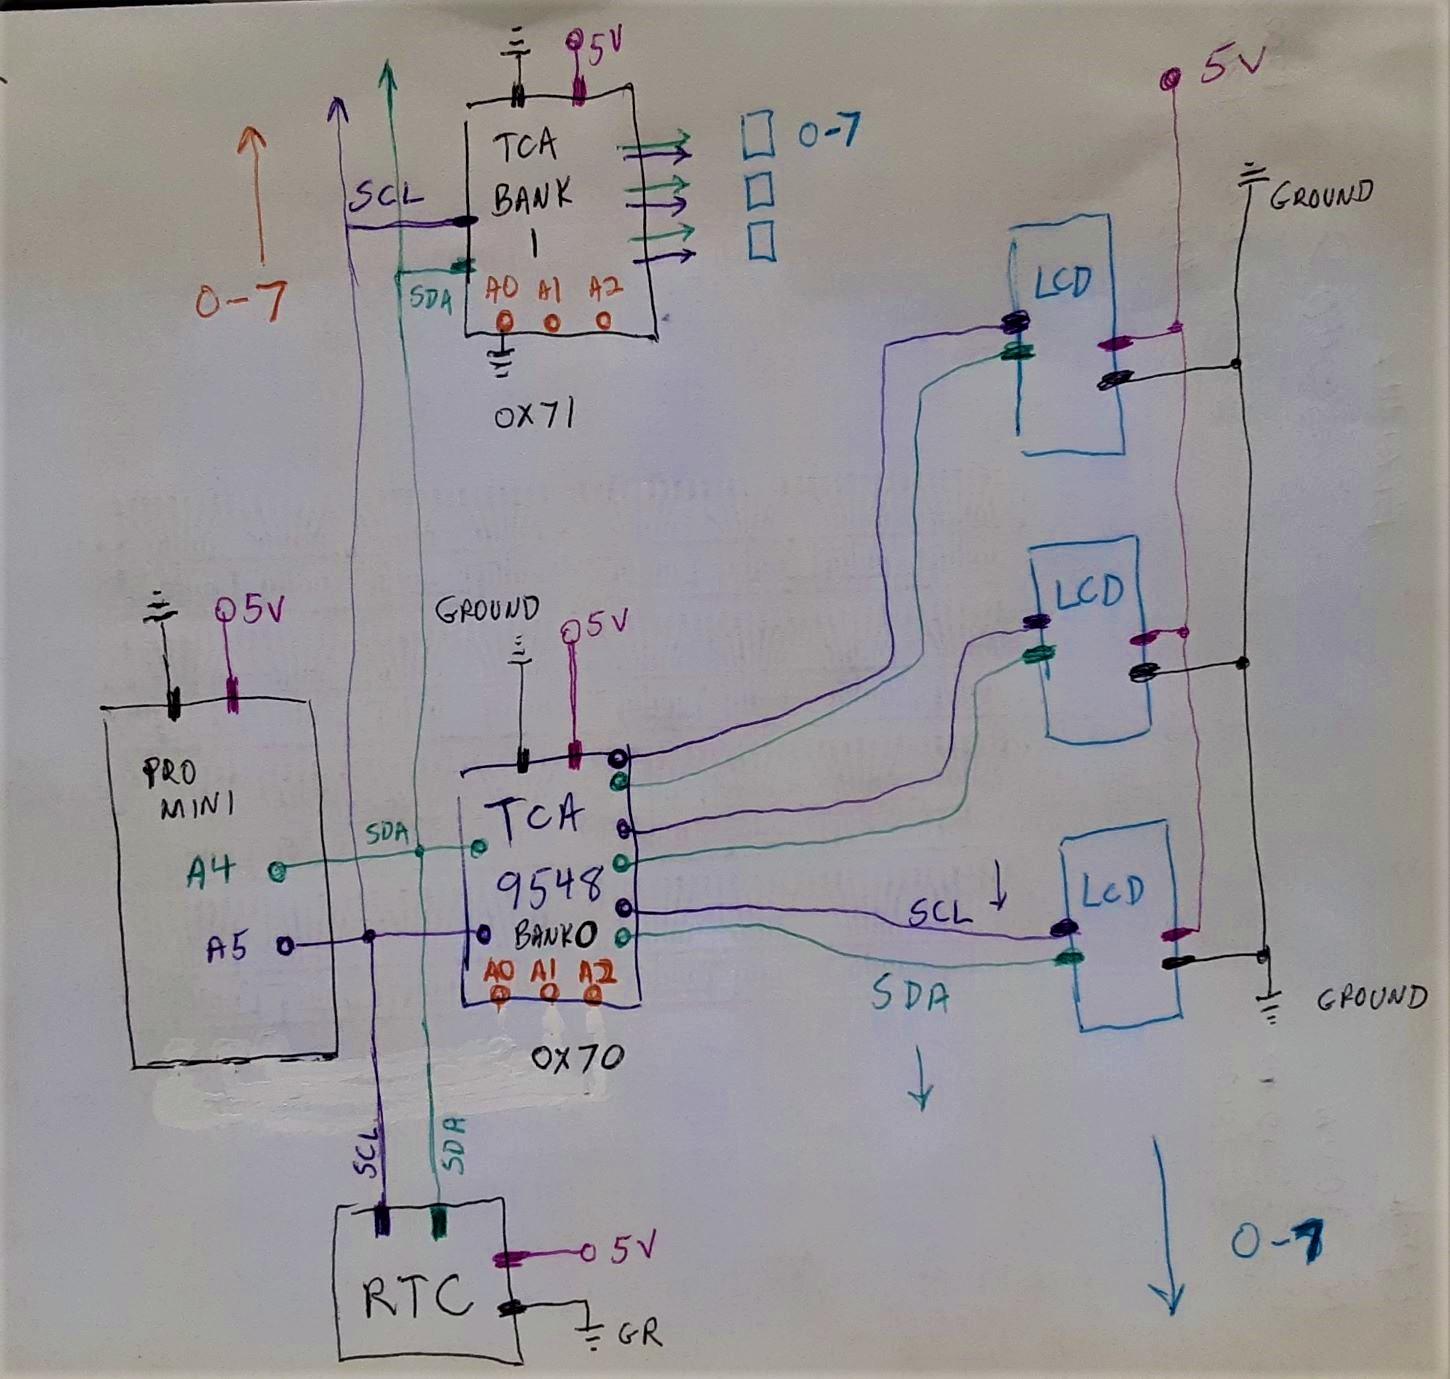 5V
5V
0-7
TCA
BANK
1
SCL
SDA
A0 A1 A2
0X71
0-7
GROUND
LCD
5V
GROUND
5V
LCD
PRO
MINI
A4
A5
SDA
TCA
9548
BANK0
A0 A1 A2
0X70
LCD
SCL
SDA
GROUND
SCL
SDA
RTC
5V
GR
0-7